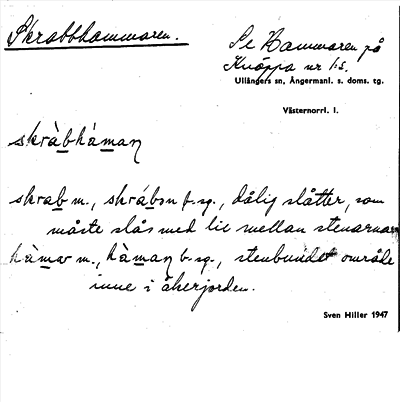 Skrabbhammaren.
Se Hammaren på
Knäppa nr 1:5.
Ullångers sn, Ångermanl. s. doms. tg.
Västernorrl. l.
skràbhàman
skrab m., skrábm b. sg., dålig slåtter, som
måste slås med lie mellan stenarna
hàmar m., hàman b. sg., stenbundet område
inne i åkerjorden.
Sven Hiller 1947